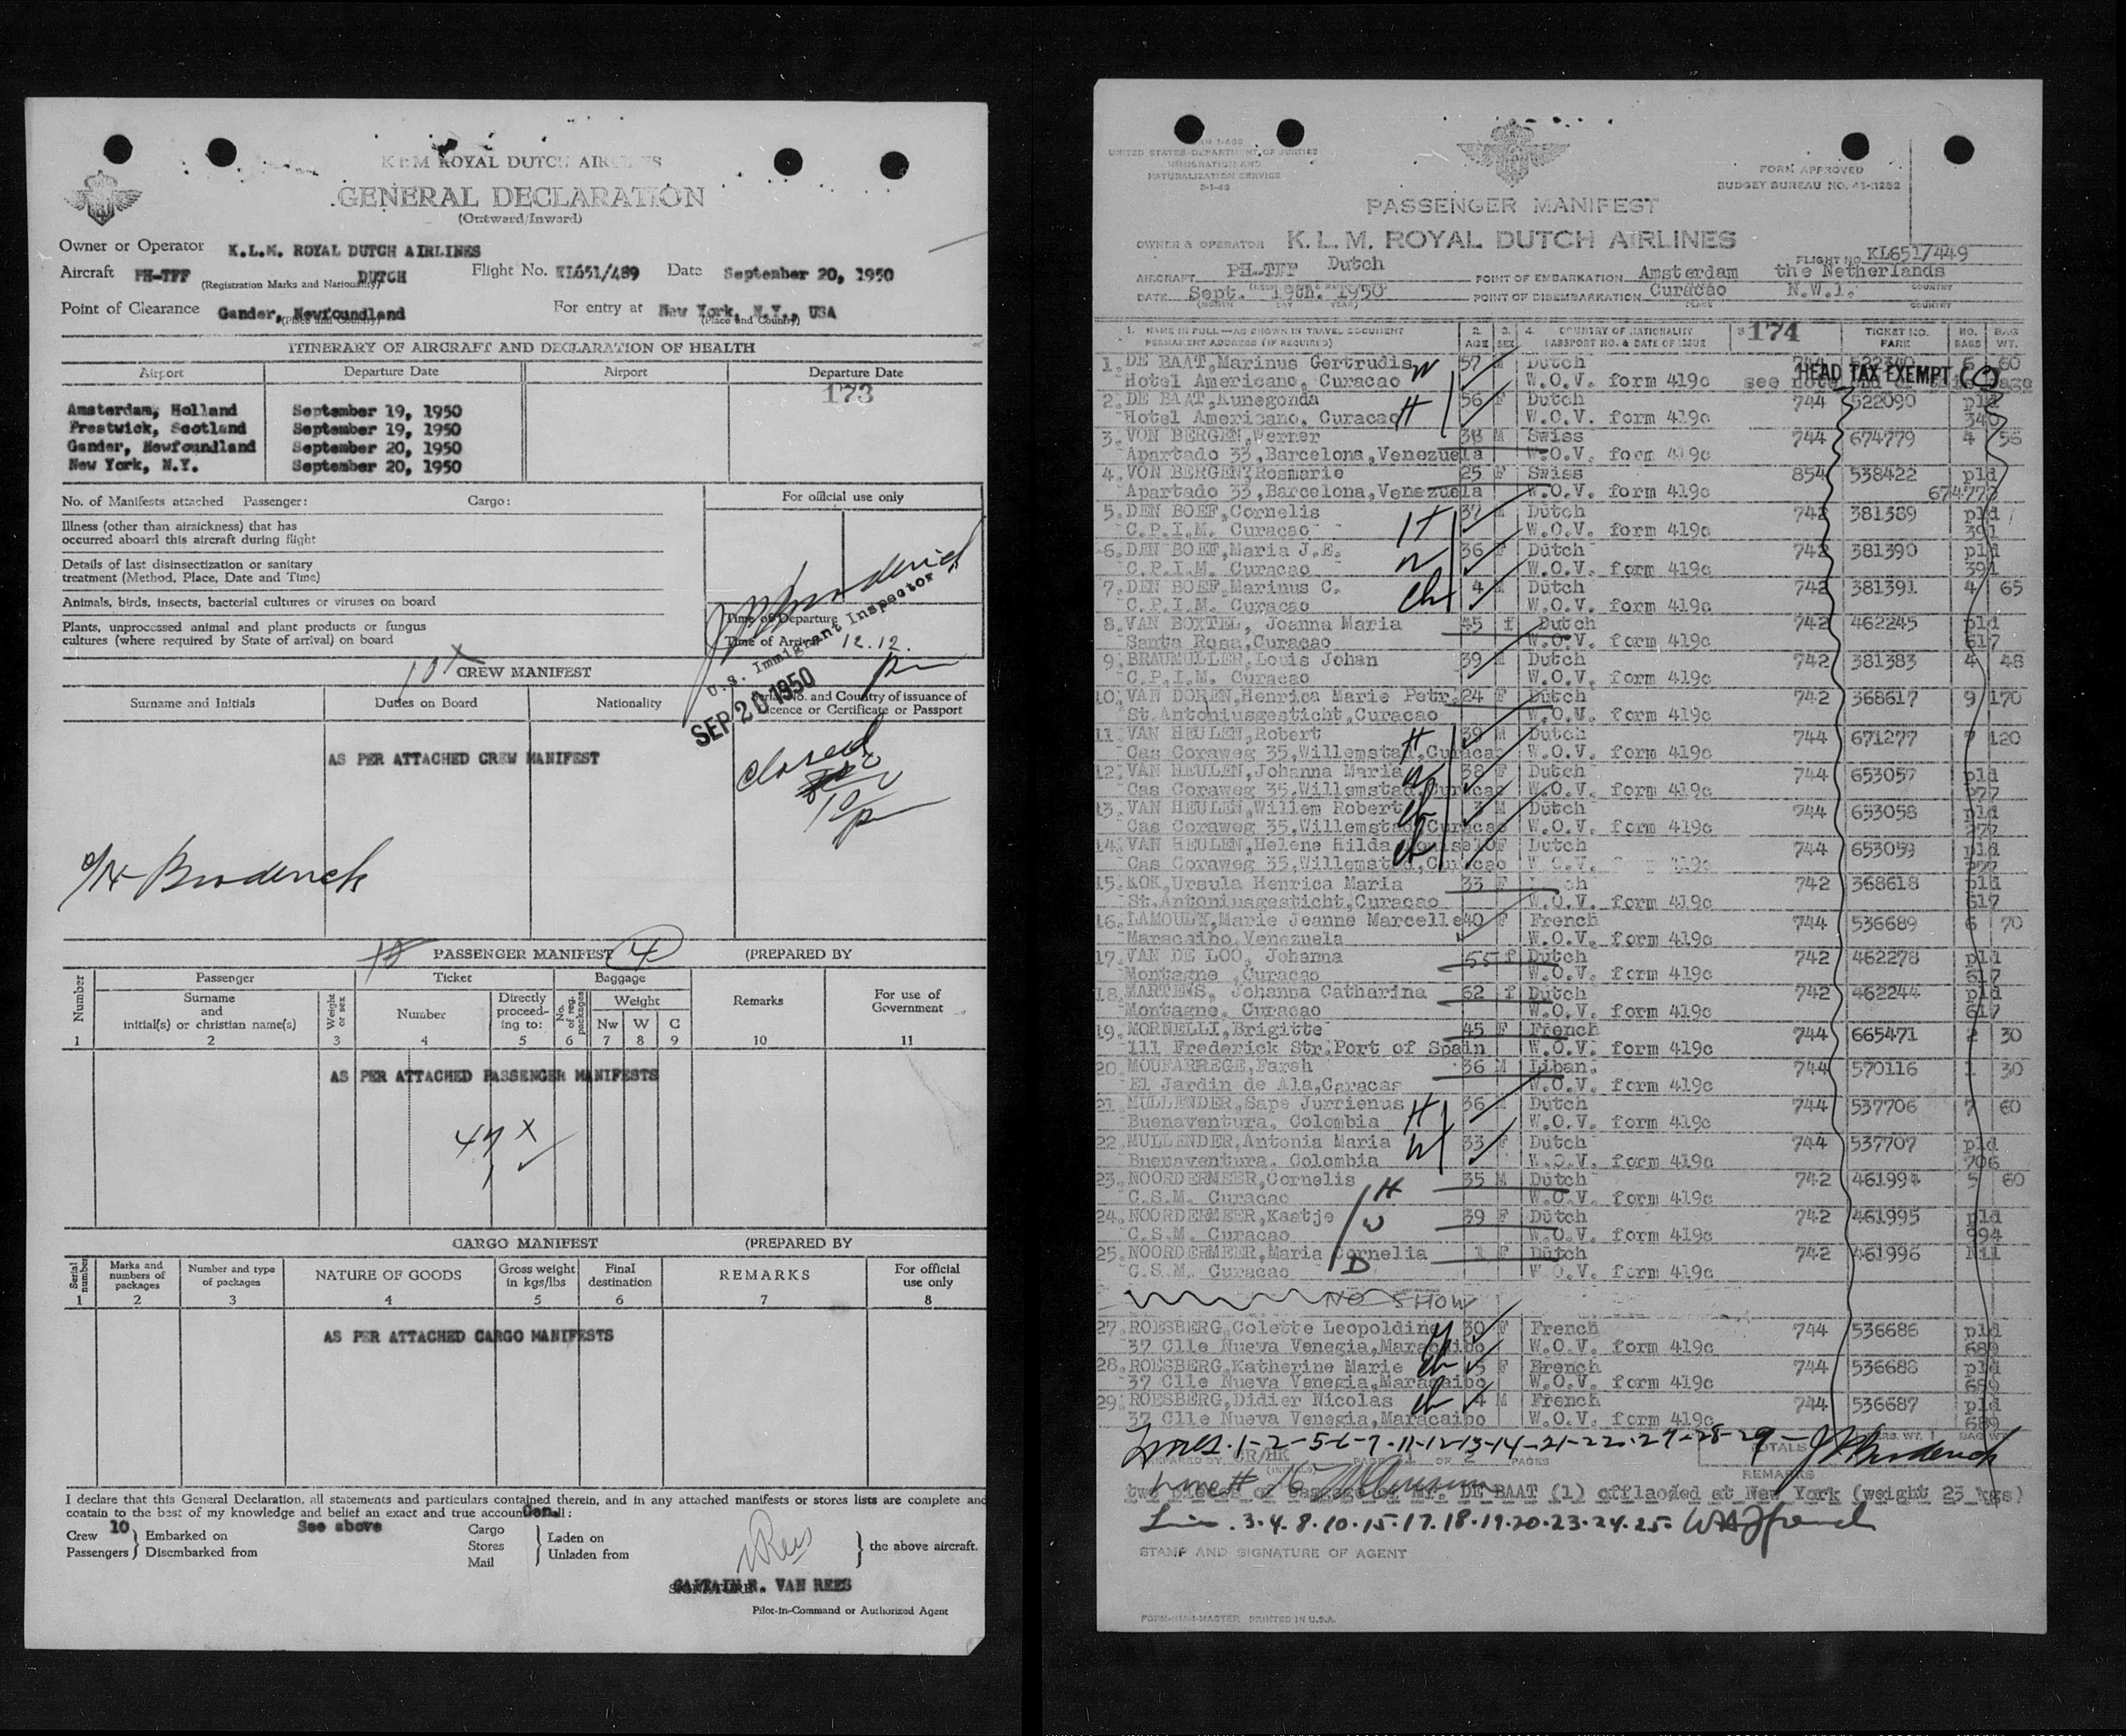 KLM ROYAL DUTCH AIRLINES
GENERAL DECLARATION
(Outward/Inward)
Owner or Operator K.L.M. ROYAL DUTCH AIRLINES
Aircraft PH-TFF DUTCH Flight No. KL651/489 Date September 20, 1950
(Registration Marks and Nationality)
Point of Clearance Gander, Newfoundland For entry at New York, N.Y., USA
(Place and Country) (Place and Country)
ITINERARY OF AIRCRAFT AND DECLARATION OF HEALTH
Airport Departure Date Airport Departure Date
173
Amsterdam, Holland September 19, 1950
Prestwick, Scotland September 19, 1950
Gander, Newfoundland September 20, 1950
New York, N.Y. September 20, 1950
No. of Manifests attached Passenger: Cargo: For official use only
Illness (other than airsickness) that has
occurred aboard this aircraft during flight
Details of last disinsectization or sanitary
treatment (Method, Place, Date and Time)
Animals, birds, insects, bacterial cultures or viruses on board
Plants, unprocessed animal and plant products or fungus
cultures (where required by State of arrival) on board
Time of Departure
Time of Arrival 12.12.
U.S. Immigrant Inspector
SEP 20 1950
10 x CREW MANIFEST
Surname and Initials Duties on Board Nationality Serial No. and Country of issuance of
Licence or Certificate or Passport
AS PER ATTACHED CREW MANIFEST
closed
Broderick
PASSENGER MANIFEST 4 (PREPARED BY
Number Passenger Ticket Baggage Remarks For use of
Government
Surname
and
initial(s) or christian name(s) Weight or sex Number Directly
proceed-
ing to: No. of reg. packages Weight
Nw W C
1 2 3 4 5 6 7 8 9 10 11
AS PER ATTACHED PASSENGER MANIFESTS
47 x
CARGO MANIFEST (PREPARED BY
Serial number Marks and
numbers of
packages Number and type
of packages NATURE OF GOODS Gross weight
in kgs/lbs Final
destination REMARKS For official
use only
1 2 3 4 5 6 7 8
AS PER ATTACHED CARGO MANIFESTS
I declare that this General Declaration, all statements and particulars contained therein, and in any attached manifests or stores lists are complete and
contain to the best of my knowledge and belief an exact and true account of all:
Crew 10 Embarked on See above Cargo Laden on
Passengers Disembarked from Stores Unladen from the above aircraft.
Mail
CAPTAIN R. VAN REES
Pilot-in-Command or Authorized Agent
UNITED STATES DEPARTMENT OF JUSTICE
IMMIGRATION AND
NATURALIZATION SERVICE
FORM APPROVED
BUDGET BUREAU NO.
PASSENGER MANIFEST
OWNER & OPERATOR K.L.M. ROYAL DUTCH AIRLINES
FLIGHT NO. KL651/449
AIRCRAFT PH-TFF Dutch POINT OF EMBARKATION Amsterdam the Netherlands
DATE Sept. 19th. 1950 POINT OF DISEMBARKATION Curacao N.W.I.
1. NAME IN FULL—AS SHOWN IN TRAVEL DOCUMENT 2. 3. 4. COUNTRY OF NATIONALITY 174 TICKET NO. NO. BAG.
PERMANENT ADDRESS (IF REQUIRED) AGE SEX PASSPORT NO. & DATE OF ISSUE FARE BAGS WT.
1. DE BAAT, Marinus Gertrudis W 57 M Dutch 744 522340 6 60
Hotel Americano, Curacao W.O.V. form 419c see note HEAD TAX EXEMPT page
2. DE BAAT, Kunegonda H 56 F Dutch 744 522090 pld
Hotel Americano, Curacao W.O.V. form 419c 340
3. VON BERGEN, Werner 38 M Swiss 744 674779 4 56
Apartado 33, Barcelona, Venezuela W.O.V. form 419c
4. VON BERGEN, Rosmarie 25 F Swiss 854 538422 pld
Apartado 33, Barcelona, Venezuela W.O.V. form 419c 674779
5. DEN BOEF, Cornelis H 37 M Dutch 742 381389 pld
C.P.I.M. Curacao W.O.V. form 419c 391
6. DEN BOEF, Maria J.E. W 36 F Dutch 742 381390 pld
C.P.I.M. Curacao W.O.V. form 419c 391
7. DEN BOEF, Marinus C. Ch 4 M Dutch 742 381391 4 65
C.P.I.M. Curacao W.O.V. form 419c
8. VAN BOXTEL, Joanna Maria 45 f Dutch 742 462245 pld
Santa Rosa, Curacao W.O.V. form 419c 617
9. BRAUMULLER, Louis Johan 39 M Dutch 742 381383 4 48
C.P.I.M. Curacao W.O.V. form 419c
10. VAN DOREN, Henrica Marie Petr. 24 F Dutch 742 368617 9 170
St. Antoniusgesticht, Curacao W.O.V. form 419c
11. VAN HEULEN, Robert H 39 M Dutch 744 671277 7 120
Cas Coraweg 35, Willemstad, Curacao W.O.V. form 419c
12. VAN HEULEN, Johanna Maria W 38 F Dutch 744 653057 pld
Cas Coraweg 35, Willemstad, Curacao W.O.V. form 419c 277
13. VAN HEULEN, Willem Robert ch 3 M Dutch 744 653058 pld
Cas Coraweg 35, Willemstad, Curacao W.O.V. form 419c 277
14. VAN HEULEN, Helene Hilda Louise ch 10 F Dutch 744 653059 pld
Cas Coraweg 35, Willemstad, Curacao W.O.V. form 419c 277
15. KOK, Ursula Henrica Maria 33 F Dutch 742 368618 pld
St. Antoniusgesticht, Curacao W.O.V. form 419c 617
16. LAMOULY, Marie Jeanne Marcelle 40 F French 744 536689 6 70
Maracaibo, Venezuela W.O.V. form 419c
17. VAN DE LOO, Johanna 55 f Dutch 742 462278 pld
Montagne, Curacao W.O.V. form 419c 617
18. MARTENS, Johanna Catharina 62 f Dutch 742 462244 pld
Montagne, Curacao W.O.V. form 419c 617
19. MORNELLI, Brigitte 45 F French 744 665471 2 30
111 Frederick Str. Port of Spain W.O.V. form 419c
20. MOUFARREGE, Farah 36 M Liban. 744 570116 1 30
El Jardin de Ala, Caracas W.O.V. form 419c
21. MULLENDER, Sape Jurrienus H 36 M Dutch 744 537706 7 60
Buenaventura, Colombia W.O.V. form 419c
22. MULLENDER, Antonia Maria W 33 F Dutch 744 537707 pld
Buenaventura, Colombia W.O.V. form 419c 706
23. NOORDERMEER, Cornelis H 35 M Dutch 742 461994 5 60
C.S.M. Curacao W.O.V. form 419c
24. NOORDERMEER, Kaatje W 39 F Dutch 742 461995 pld
C.S.M. Curacao W.O.V. form 419c 994
25. NOORDERMEER, Maria Cornelia D 1 F Dutch 742 461996 Nil
C.S.M. Curacao W.O.V. form 419c
NO SHOW
27. ROESBERG, Colette Leopoldine 30 F French 744 536686 pld
37 Clle Nueva Venegia, Maracaibo W.O.V. form 419c 689
28. ROESBERG, Katherine Marie ch 5 F French 744 536688 pld
37 Clle Nueva Venegia, Maracaibo W.O.V. form 419c 689
29. ROESBERG, Didier Nicolas ch 4 M French 744 536687 pld
37 Clle Nueva Venegia, Maracaibo W.O.V. form 419c 689
Lines 1-2-5-6-7-11-12-13-14-21-22-27-28-29
PREPARED BY GR/HK PAGE 1 OF 2 PAGES TOTALS
Line # 16 REMARKS
two pieces of baggage of Mr. DE BAAT (1) offlaoded at New York (weight 23 kgs)
Lines 3.4.8.10.15.17.18.19.20.23.24.25
STAMP AND SIGNATURE OF AGENT
PRINTED IN U.S.A.